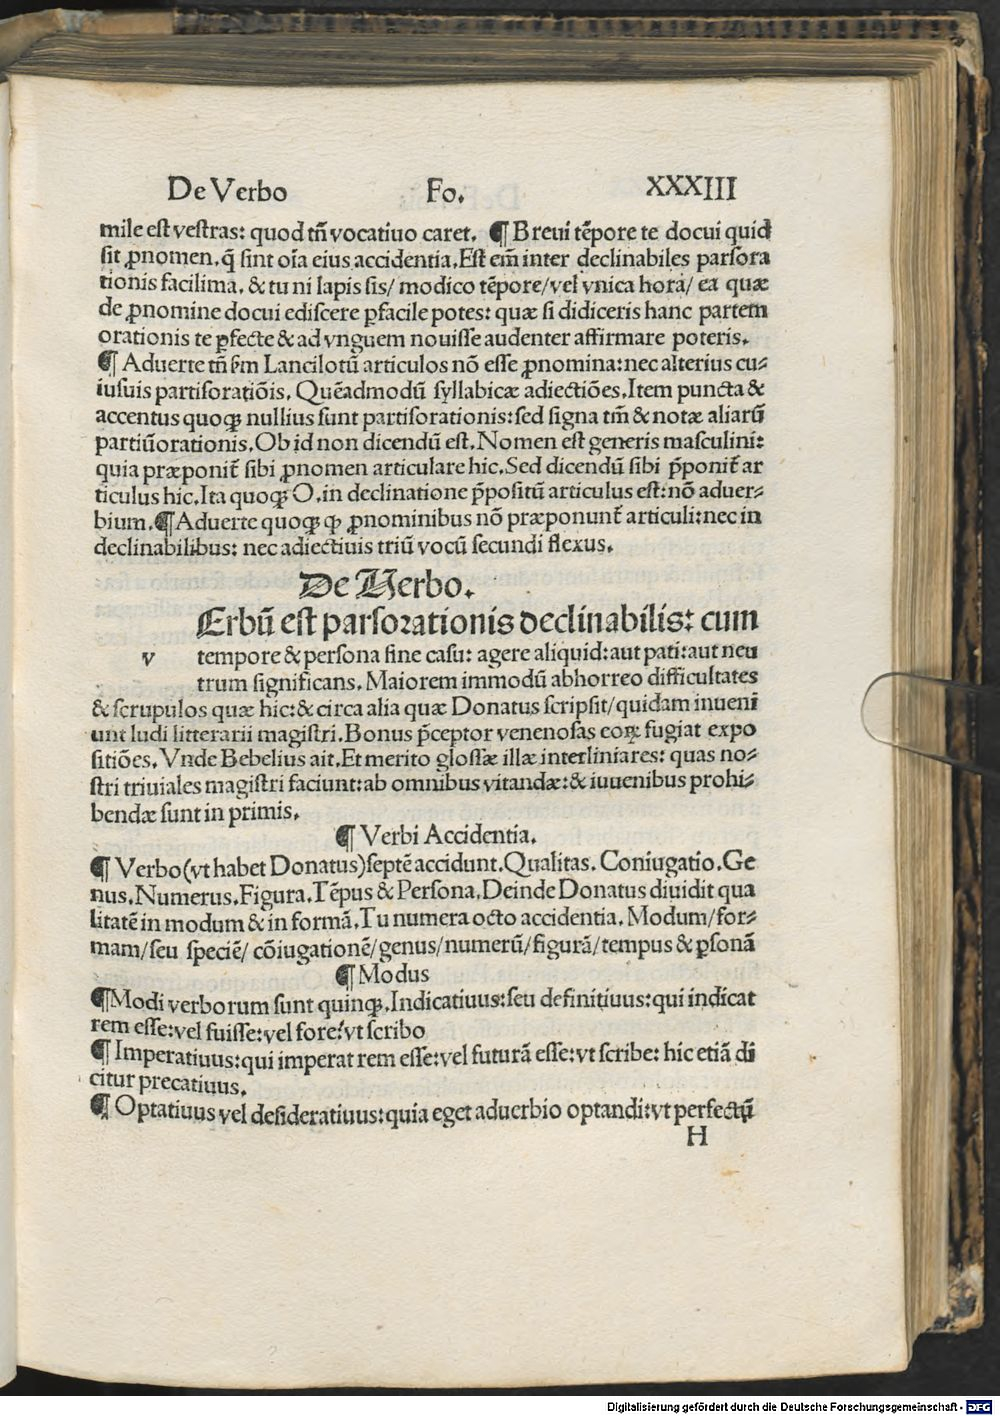 De Verbo Fo. XXXIII
mile est vestras: quod tñ vocatiuo caret. ¶ Breui tẽpore te docui quid
sit ꝓnomen. q̃ sint oĩa eius accidentia. Est em̃ inter declinabiles parsora
tionis facilima. & tu ni lapis sis/ modico tẽpore/ vel vnica hora/ ea quæ
de ꝓnomine docui ediscere ꝑfacile potes: quæ si didiceris hanc partem
orationis te ꝑfecte & ad vnguem nouisse audenter affirmare poteris.
¶ Aduerte tñ ẜm Lancilotũ articulos nõ esse ꝓnomina: nec alterius cu⸗
iusuis partisoratiõis. Quẽadmodũ syllabicæ adiectiões. Item puncta &
accentus quoqꝫ nullius sunt partisorationis: sed signa tm̃ & notæ aliarũ
partiũorationis. Ob id non dicendũ est. Nomen est generis masculini:
quia præponit̃ sibi ꝓnomen articulare hic. Sed dicendũ sibi p̃ponit̃ ar
ticulus hic. Ita quoqꝫ O. in declinatione p̃positũ articulus est: nõ aduer⸗
bium. ¶ Aduerte quoqꝫ ꝙ ꝓnominibus nõ præponunt̃ articuli: nec in
declinabilibus: nec adiectiuis triũ vocũ secundi flexus.
De Verbo.
Erbũ est parsorationis declinabilis: cum
v tempore & persona sine casu: agere aliquid: aut pati: aut neu
trum significans. Maiorem immodũ abhorreo difficultates
& scrupulos quæ hic: & circa alia quæ Donatus scripsit/ quidam inueni
unt ludi litterarii magistri. Bonus p̃ceptor venenosas eoꝝ fugiat expo
sitiões. Vnde Bebelius ait. Et merito glossæ illæ interliniares: quas no⸗
stri triuiales magistri faciunt: ab omnibus vitandæ: & iuuenibus prohi⸗
bendæ sunt in primis.
¶ Verbi Accidentia.
¶ Verbo (vt habet Donatus) septẽ accidunt. Qualitas. Coniugatio. Ge
nus. Numerus. Figura. Tẽpus & Persona. Deinde Donatus diuidit qua
litatẽ in modum & in formã. Tu numera octo accidentia. Modum/ for⸗
mam/ seu speciẽ/ cõiugationẽ/ genus/ numerũ/ figurã/ tempus & ꝑsonã
¶ Modus
¶ Modi verborum sunt quinqꝫ. Indicatiuus: seu definitiuus: qui indicat
rem esse: vel fuisse: vel fore: vt scribo
¶ Imperatiuus: qui imperat rem esse: vel futurã esse: vt scribe: hic etiã di
citur precatiuus.
¶ Optatiuus vel desideratiuus: quia eget aduerbio optandi: vt perfectũ
H
Digitalisierung gefördert durch die Deutsche Forschungsgemeinschaft - DFG